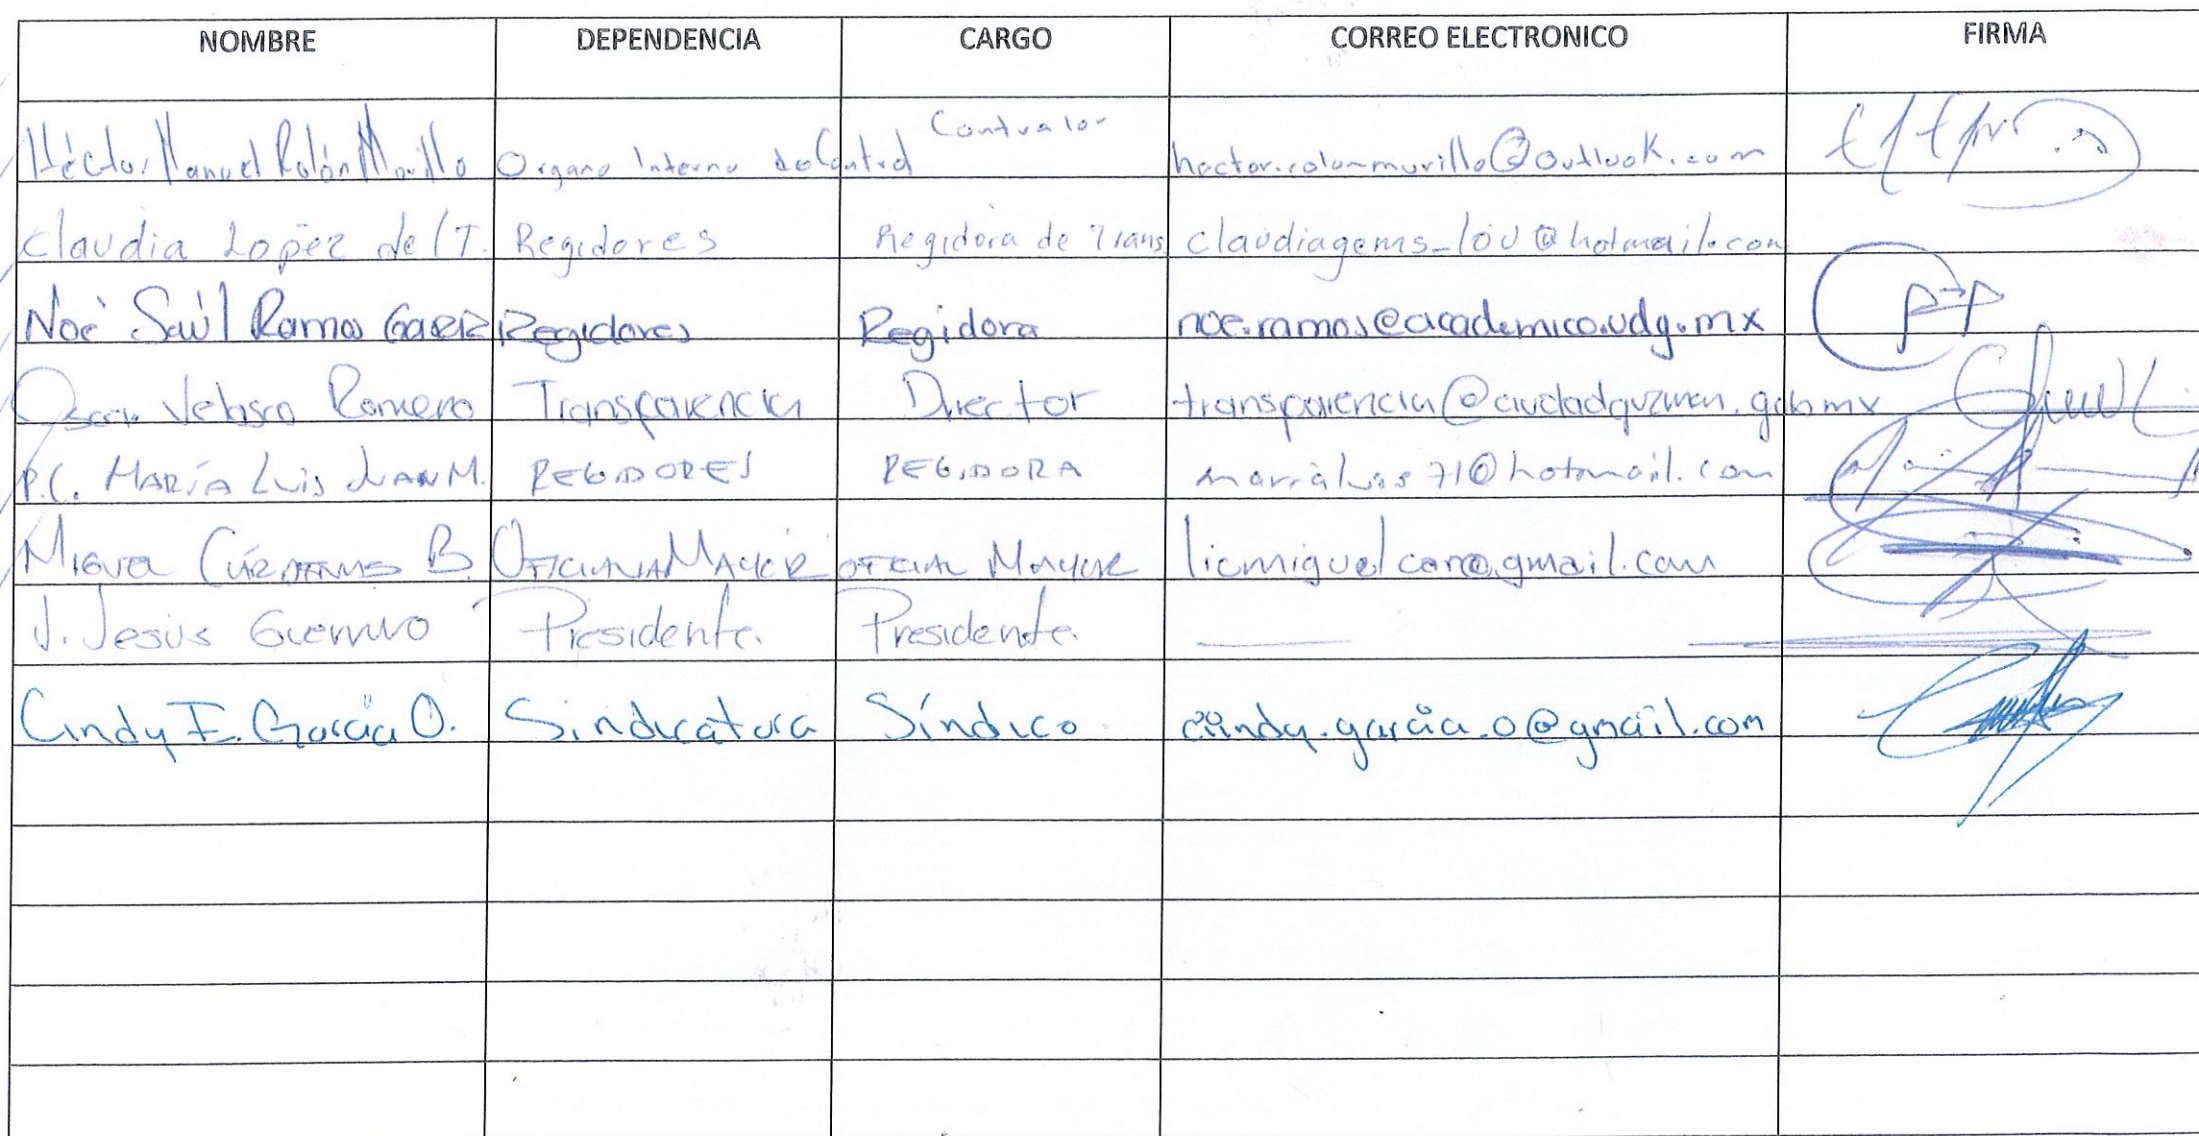 NOMBRE DEPENDENCIA CARGO CORREO ELECTRONICO FIRMA
Héctor Manuel Rolón Murillo Organo Interno de Control Contralor hector.rolon-murillo@outlook.com
Claudia López del T. Regidores Regidora de Trans claudiagems_lov@hotmail.com
Noé Saúl Ramos García Regidores Regidora noe.ramos@academico.udg.mx
Oscar Velasco Romero Transparencia Director transparencia@ciudadguzman.gob.mx
P.C. MARÍA Luis JUAN M. REGIDORES REGIDORA mariàluis71@hotmail.com
MIGUEL CÁRDENAS B. OFICIALIA MAYOR OFICIAL MAYOR licmiguelcar@gmail.com
J. Jesús Guerrero Presidente. Presidente.
Cindy E. García O. Sindicatura Síndico cindy.garcia.o@gmail.com